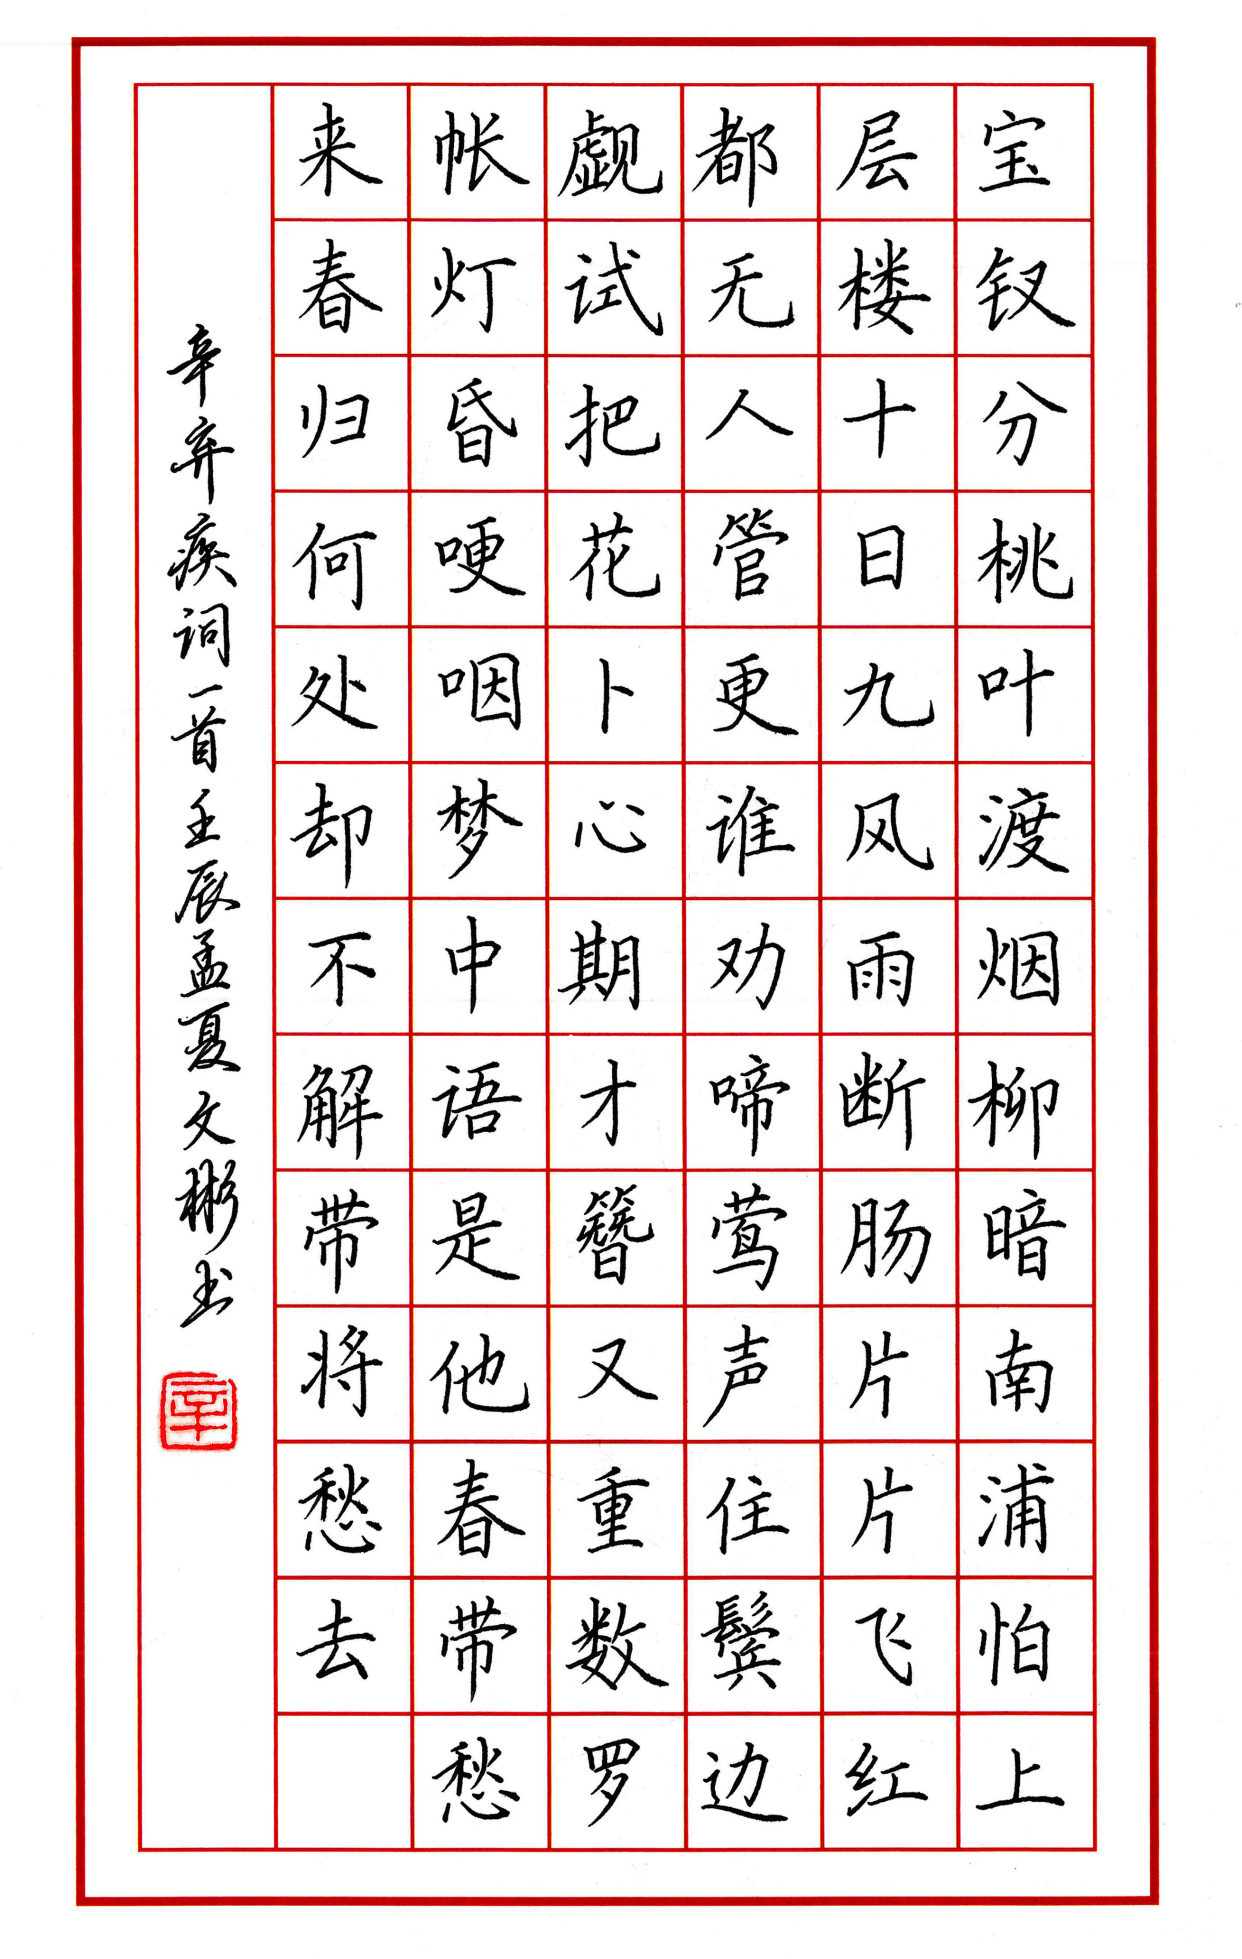 宝钗分桃叶渡烟柳暗南浦怕上
层楼十日九风雨断肠片片飞红
都无人管更谁劝啼莺声住鬓边
觑试把花卜心期才簪又重数罗
帐灯昏哽咽梦中语是他春带愁
来春归何处却不解带将愁去
辛弃疾词一首壬辰孟夏文彬书